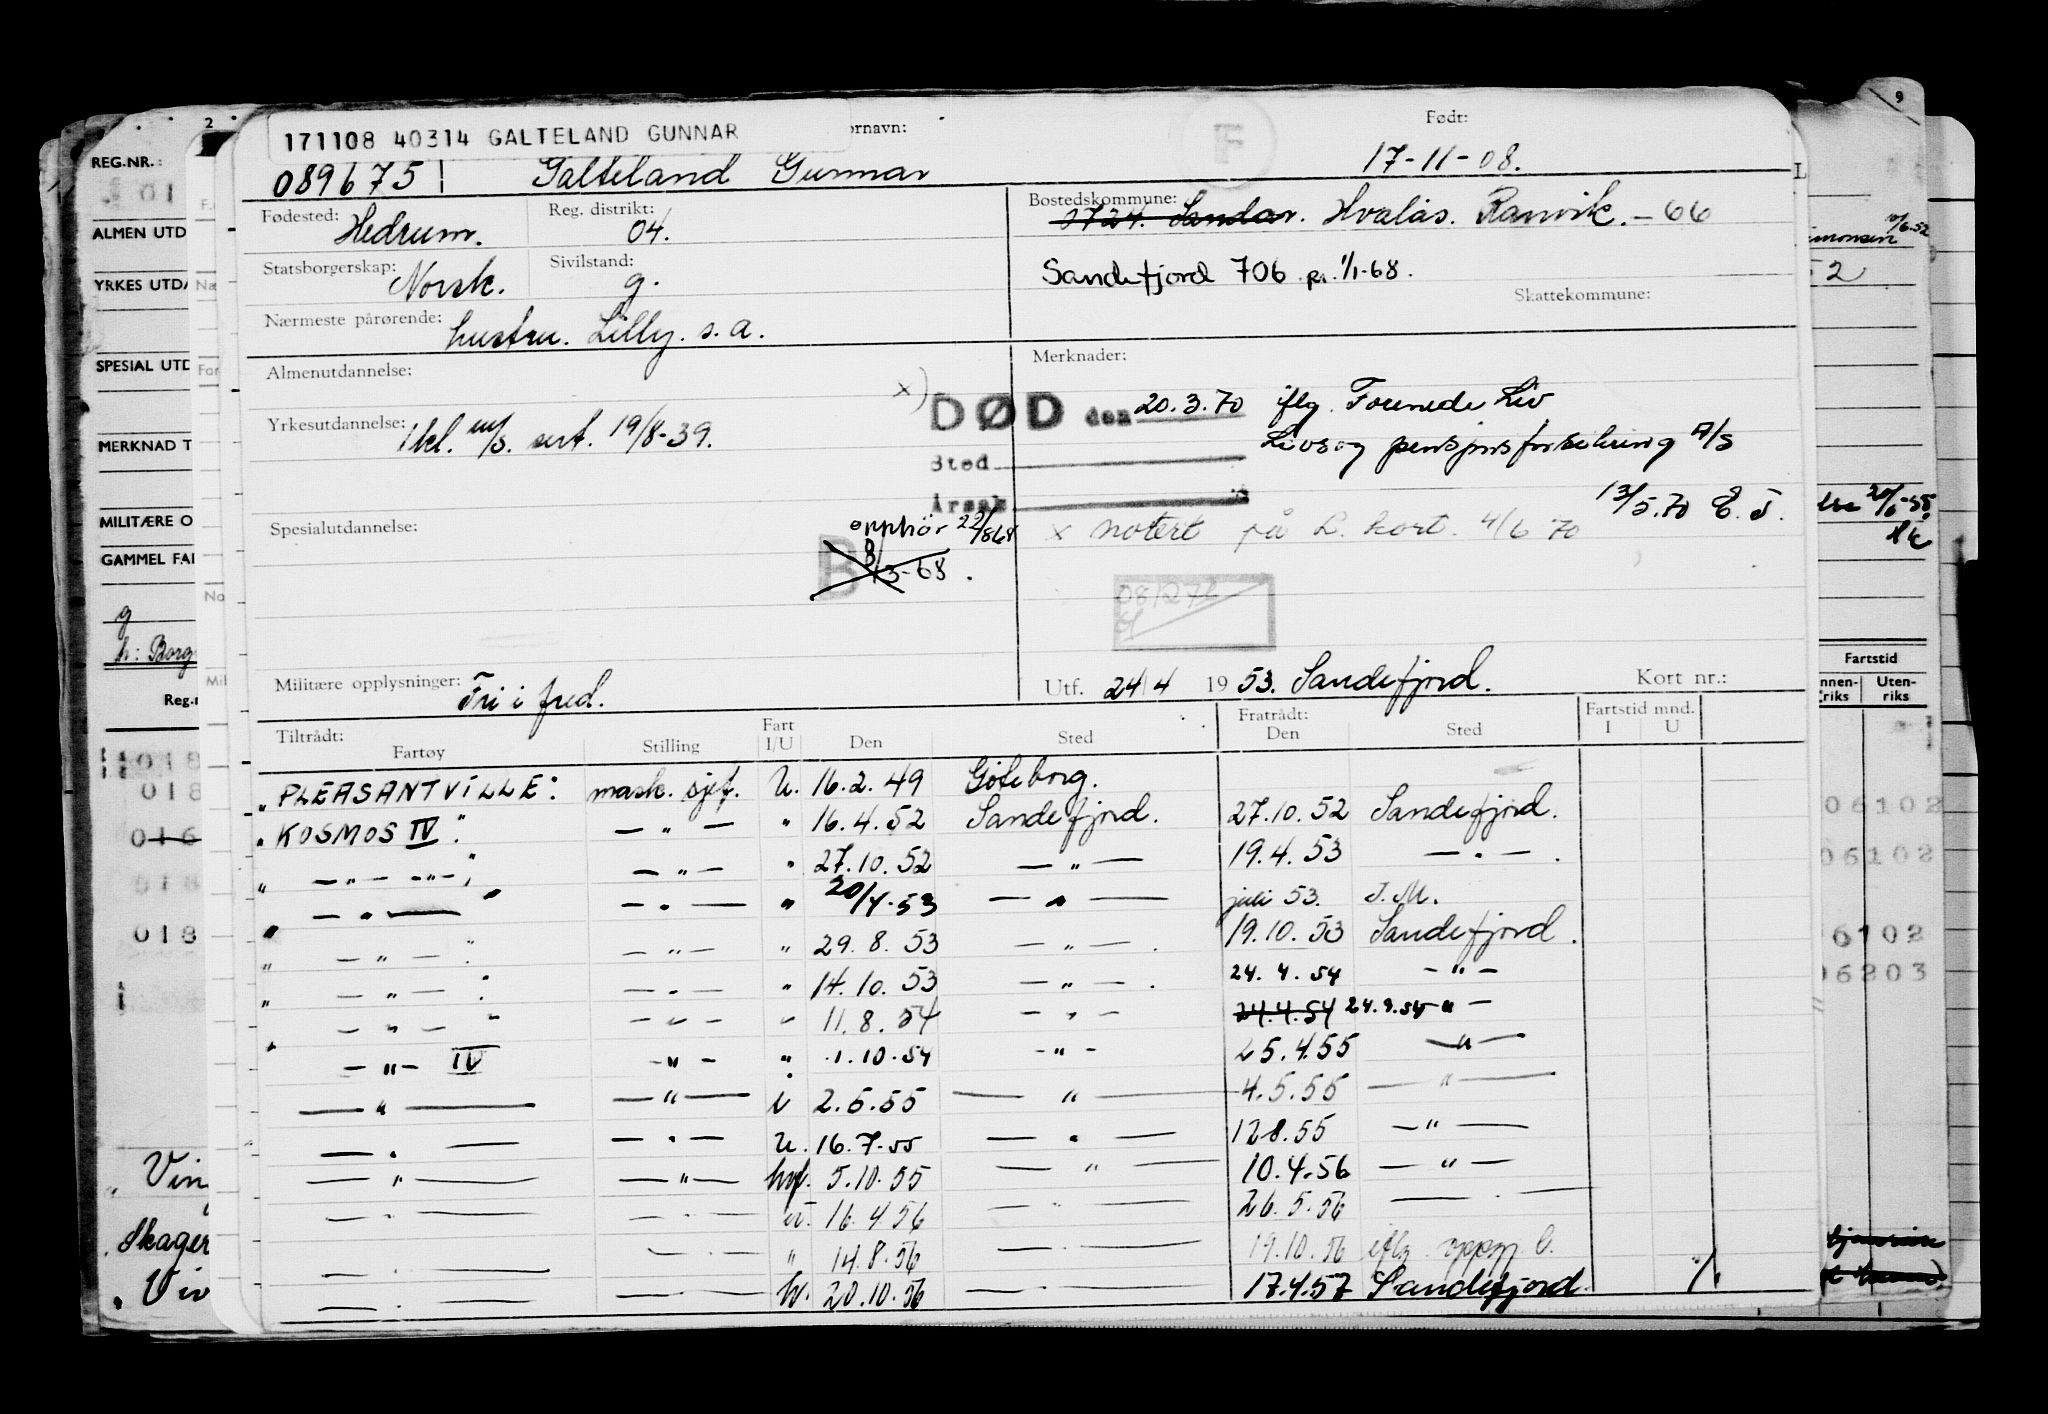 171108 40314 GALTELAND GUNNAR
ornavn:
F
Født:
089675 Galteland Gunnar 17-11-08.
Fødested: Hedrum.
Reg. distrikt: 04.
Bostedskommune: 1724. Sandar. Hvalås. Ranvik. - 66
Statsborgerskap: Norsk.
Sivilstand: g.
Sandefjord 706 pr. 1/1-68.
Skattekommune:
Nærmeste pårørende: hustru. Lilly. s. a.
Almenutdannelse:
Merknader:
x) DØD den 20.3.70 iflg. Forenede Liv
Yrkesutdannelse: 1 kl. m/s. sert. 19/8-39.
Livs og pensjonsforsikring A/S
Sted
Årsak
13/5.70 E. J.
Spesialutdannelse:
opphør 22/868
x notert på L. kort. 4/6 70
B 8/3-68.
Militære opplysninger: Fri i fred.
Utf. 24/4 1953. Sandefjord.
Kort nr.:
Tiltrådt:
Fartøy Stilling Fart I/U Den Sted
Fratrådt:
Den Sted
Fartstid mnd.
I U
" PLEASANTVILLE: mask. sjef. U. 16.2.49 Göteborg.
" KOSMOS IV " — " — " 16.4.52 Sandefjord. 27.10.52 Sandefjord.
" — " — — " — " — " — " 27.10.52 — " — 19.4.53 — " — .
" — " — " — " — " 20/4-53 — " — juli 53. I.M.
" — " — " — " — " 29.8.53 — " — . 19.10.53 Sandefjord.
" — " — " — " — " 14.10.53 — " — . 24.4.54 — " —
" — " — " — " — " 11.8.54 — " — 24.4.54 24.9.54 " —
— " — IV — " — " 1.10.54 — " — 25.4.55 — " —
— " — — " — i 2.5.55 — " — 4.5.55 — " —
— " — — " — U. 16.7.55 — " — 12.8.55 — " —
— " — — " — hvf. 5.10.55 — " — 10.4.56 — " —
— " — — " — U. 16.4.56 — " — 26.5.56 — " —
— " — — " — " 14.8.56 — " — 19.10.56 iflg. oppg. b.
— " — — " — hv. 20.10.56 — " — 17.4.57 Sandefjord.
2
REG.NR.:
01
ALMEN UTD
YRKES UTDA
SPESIAL UTD
MERKNAD T
MILITÆRE O
GAMMEL FA
g
h: Borg
Reg.
018
018
016
018
018
Vin
Skager
Vin
9
10/6.52
52
20/1-55.
Fartstid
Innen-riks Uten-riks
06102
06102
6102
06203